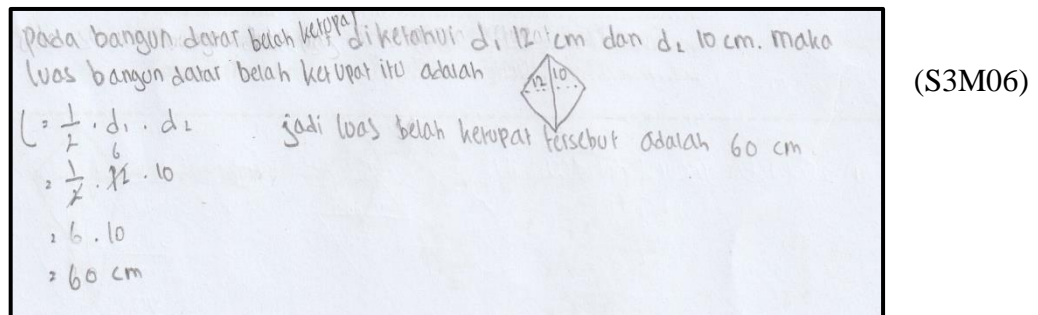 pada bangun datar belah ketupat diketahui d₁ 12 cm dan d₂ 10 cm. maka
luas bangun datar belah ketupat itu adalah
12 10
L = 1/2 . d₁ . d₂ jadi luas belah ketupat tersebut adalah 60 cm.
6
= 1/2 . 12 . 10
= 6 . 10
= 60 cm
(S3M06)